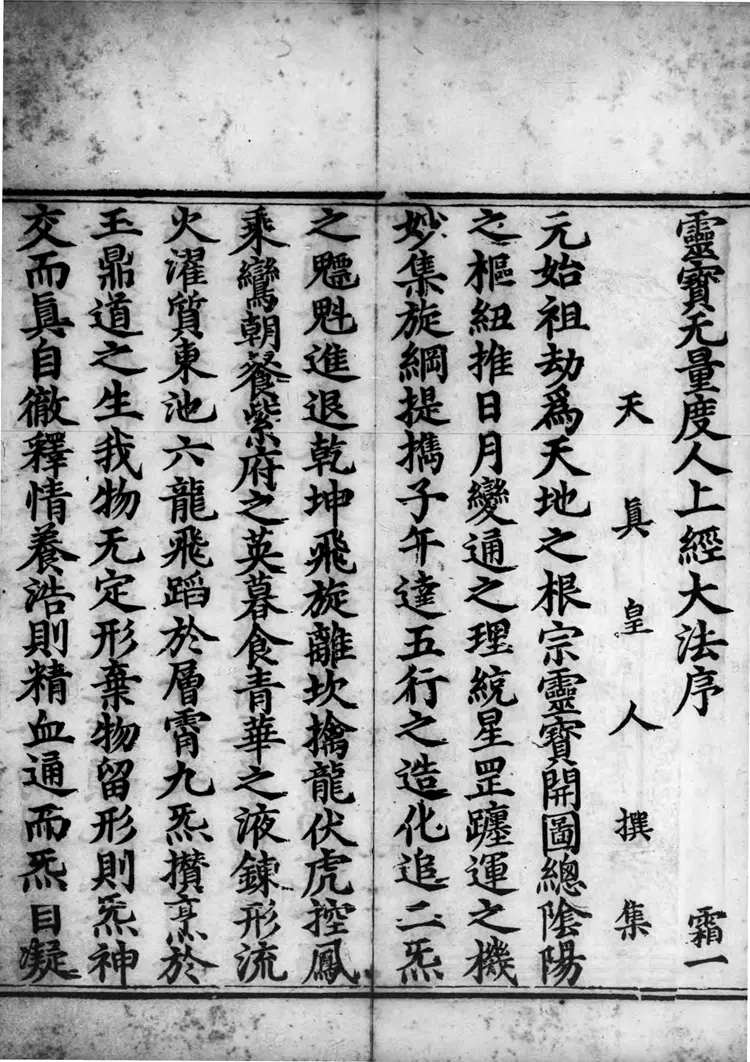 靈寳无量度人上經大法序 霜一
天眞皇人撰集
元始祖劫爲天地之根宗靈寳開圖總陰陽
之樞紐推日月變通之理統星罡躔運之機
妙集旋綱提攜子午達五行之造化追二炁
之魒魁進退乾坤飛旋離坎擒龍伏虎控鳳
乘鸞朝餐紫府之英暮食青華之液鍊形流
火濯質東池六龍飛蹈於層霄九炁攅烹於
玉鼎道之生我物无定形棄物留形則炁神
交而眞自徹釋情養浩則精血通而炁目凝